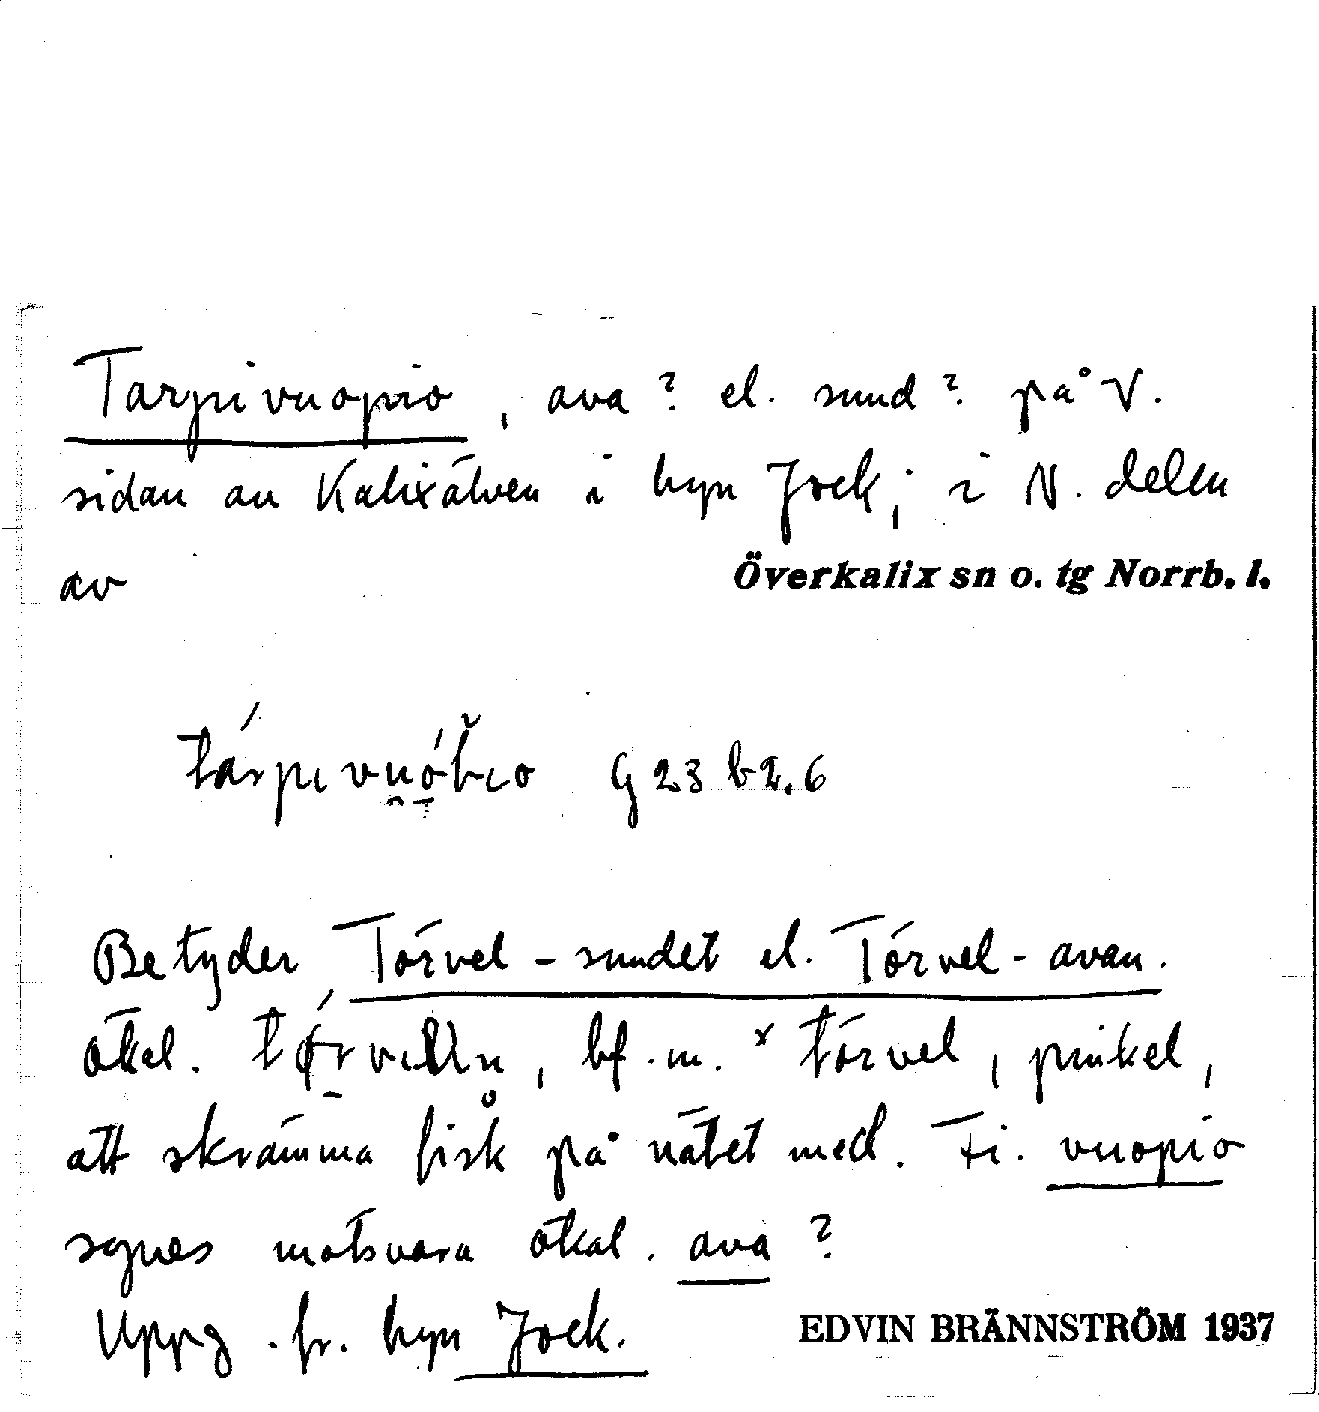 Tarpivuopio, ava? el. sund? på V.
sidan au Kalixälven i byn Jock, i N. delen
av Överkalix sn o. tg Norrb. l.
G 23 b 2.6
Betyder Törvel-sundet el. Törvel-avan.
ökal. bf.m. * törvel, pinkel,
att skrämma fisk på nätet med. Fi. vuopio
synes motsvara ökal. ava?
Uppg. fr. byn Jock. EDVIN BRÄNNSTRÖM 1937